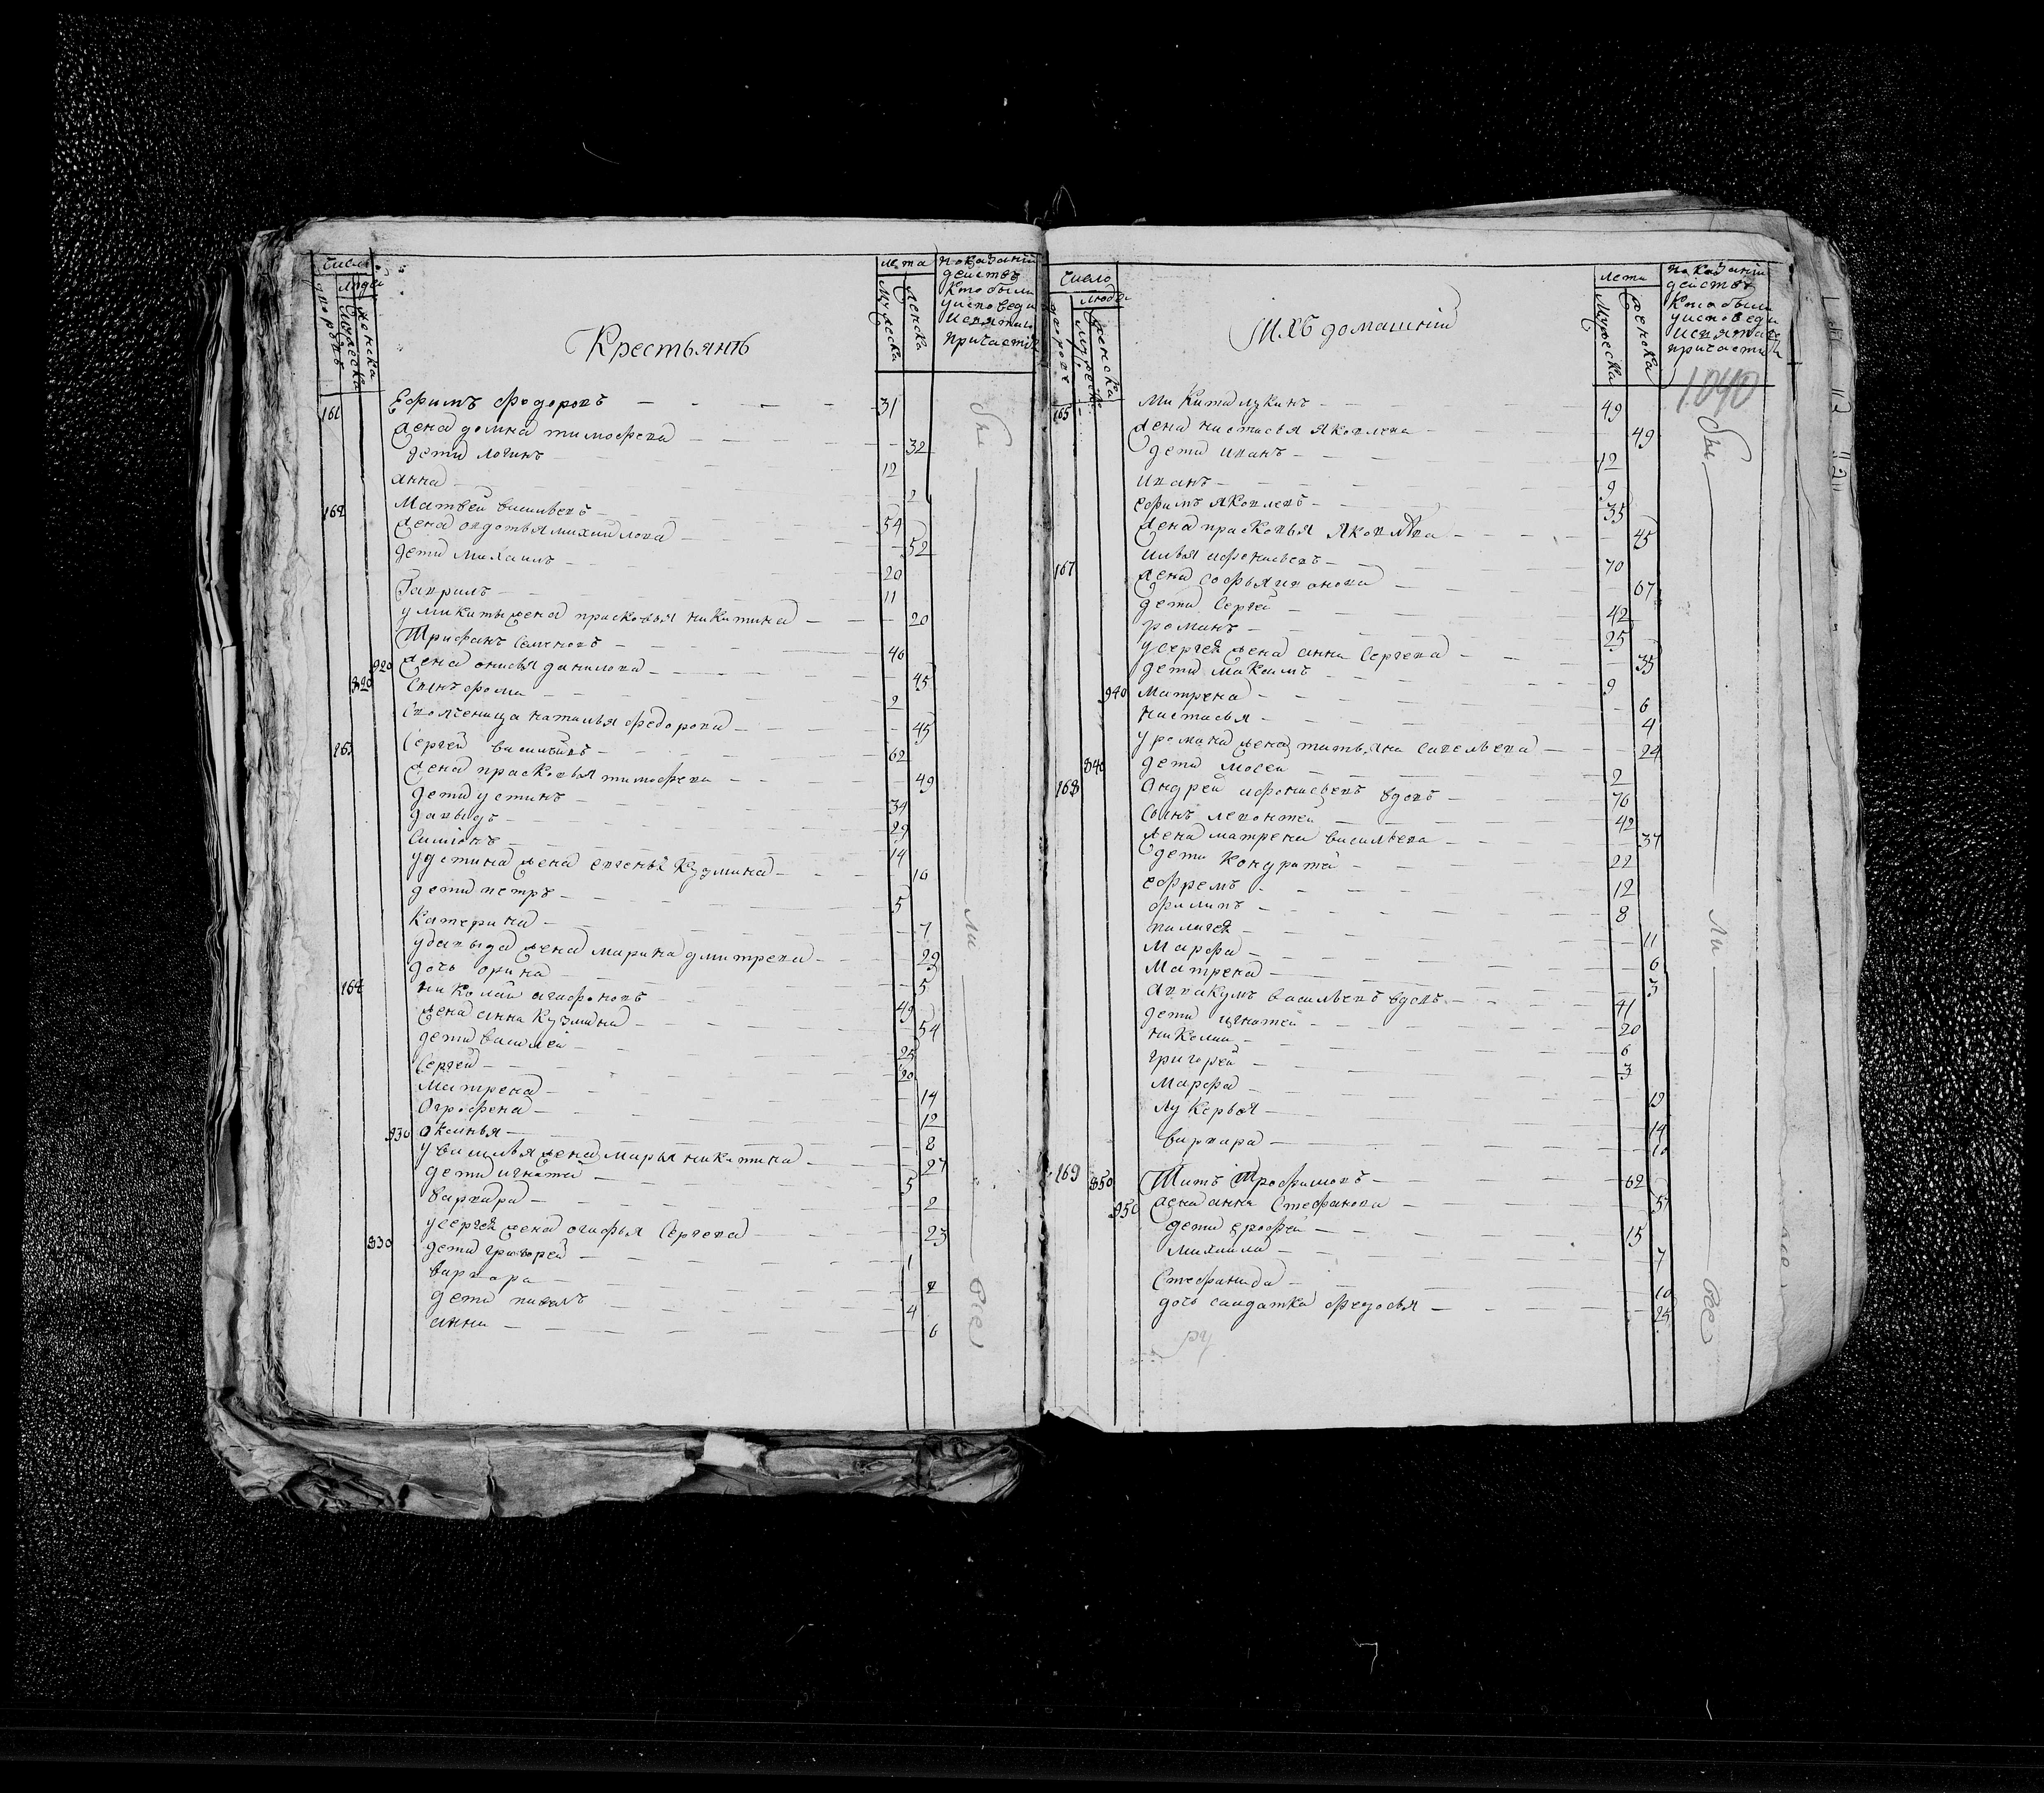 число
людей
дворовъ
мужеска
женска
Крестьянъ
лета
мужеска
женска
показанiи
действъ
кто были
уисповеди
исвятаго
причастiя
161 Ефимъ Федоровъ 31
жена домна тимофева 32
дети логинъ 12
анна
162 Матвей васильевъ 54
жена овдотья михайлова 52
дети михаилъ 20
Гаврилъ 11
у микиты жена прасковья никитина 20
Трифанъ Семеновъ 46
920 жена анисья данилова 45
820 Сынъ фома 2
Своячница наталья федорова 45
163 Сергей васильевъ 62
жена прасковья тимофева 49
дети устинъ 34
давыдъ 29
Симiонъ 14
у устина жена евгенья Кузмина
дети петръ 5
Катерина 7
у давыда жена марина дмитрева 29
дочь орина 5
164 николай агафоновъ 49
жена анна Кузмина 54
дети василей 25
Сергей 20
Матрена 14
Огрофена 12
930 Оксинья 8
у василья жена марья никитина 27
дети игнатей 5
варвара 2
у сергея жена агафья Сергева 23
830 дети григорей 1
варвара
дети павелъ 4
анна 6
бы
ли
все
число
людей
дворовъ
мужеска
женска
Ихъ домашнiи
лета
мужеска
женска
показанiи
действъ
кто были
уисповеди
исвятаго
причастiя
1040
165 Микита лукинъ 49
жена настасья Яковлева 49
дети иванъ 12
иванъ 9
ефимъ яковлевъ 35
жена прасковья Яковлева 45
167 илья афонасьевъ 70
жена софья иванова 67
дети Сергей 42
романъ 25
у сергея жена анна Сергева 35
дети максимъ 9
940 Матрена 6
настасья 4
у романа жена татьяна савельева 24
840 дети мосей 2
168 Андрей афонасьевъ вдовъ 70
Сынъ левонтей 42
жена матрена васильева 37
дети Кондратей 22
ефремъ 12
филипъ 8
11
Марфа 6
Матрена 3
Аввакумъ васильевъ вдовъ 41
дети игнатей 20
николай 6
григорей 3
Марфа
лукерья 14
варвара
169 850 Титъ Трофимовъ 62
950 жена анна Стефанова
дети ерофей 15
михайла 7
Стефанида 10
дочь салдатка федосья 25
бы
ли
все
ру